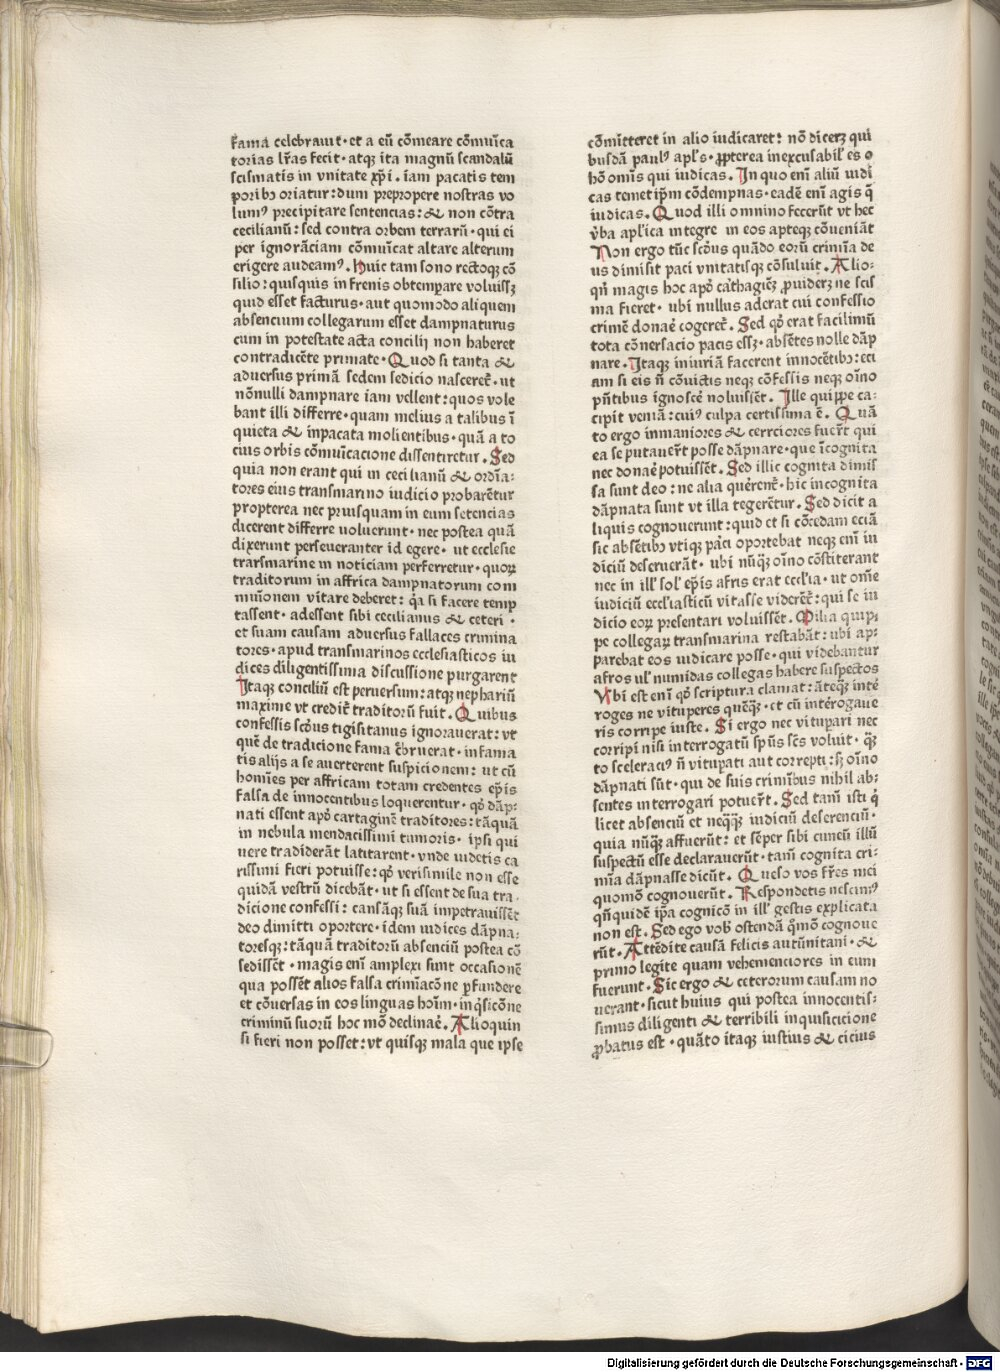 fama celebrauit · et a eū cōmeare cōmuīca
torias lr̄as fecit · atqꝫ ita magnū scandalū
scismatis in vnitate xp̄i . iam pacatis tem
poribꝯ oriatur : dum prepropere nostras vo
lumꝰ precipitare sentencias : & non cōtra
cecilianū : sed contra orbem terrarū · qui ei
per ignorāciam cōmuīcat altare alterum
erigere audeamꝰ . Huic tam sono rectoqꝫ cō
silio : quisquis in frenis obtempare voluissꝫ
quid esset facturus · aut quomodo aliquem
absencium collegarum esset dampnaturus
cum in potestate acta concilij non haberet
contradicēte primate · Quod si tanta &
aduersus primā sedem sedicio nasceret᷑ · ut
nōnulli dampnare iam vellent : quos vole
bant illi differre · quam melius a talibus ī
quieta & inpacata molientibus · quā a to
cius orbis cōmuīcacione dissentiretur . Sed
quia non erant qui in cecilianū & ordīa⸗
tores eius transmarino iudicio probarētur
propterea nec priusquam in eum setencias
dicerent differre voluerunt · nec postea quā
dixerunt perseueranter id egere · ut ecclesie
trasmarine in noticiam perferretur · quoꝝ
traditorum in affrica dampnatorum com
muīonem vitare deberet : q̄a si facere temp
tassent · adessent sibi cecilianus & ceteri ·
et suam causam aduersus fallaces crimina
tores · apud transmarinos ecclesiasticos iu
dices diligentissima discussione purgarent
Itaqꝫ conciliū est peruersum : atqꝫ nephariū
maxime vt credit᷑ traditorū fuit . Quibus
confessis scd̄us tigisitanus ignorauerat : vt
quē de tradicione fama c̄bruerat · infama
tis alijs a se auerterent suspicionem : ut cū
homīes per affricam totam credentes ep̄is
falsa de innocentibus loquerentur · qꝰ dāp⸗
nati essent apꝰ cartaginē traditores : tāquā
in nebula mendacissimi rumoris · ipsi qui
uere tradiderāt latitarent · vnde uidetis ca
rissimi fieri potuisse : qꝰ verisimile non esse
quidā vestrū dicebāt · ut si essent de sua tra⸗
dicione confessi : cansāqꝫ suā impetrauissēt
deo dimitti oportere · idem iudices dāpna⸗
toresqꝫ : tāquā traditorū absenciū postea cō
sedissēt · magis enī amplexi sunt occasionē
qua possēt alios falsa crimīacōne ꝑfundere
et cōuersas in eos linguas hoīm · inqͥsicōne
criminū suorū hoc mō declinac̄ . Alioquin
si fieri non posset : vt quisqꝫ mala que ipse
cōmītteret in alio iudicaret : nō dicerꝫ qui
busdā paulꝰ apl̄s · ꝓpterea inexcusabil̓ es o
hō omīs qui iudicas . In quo enī aliū iudi
cas temet ip̄m cōdempnas · eadē enī agis q̄
iudicas . Quod illi omnino fecerūt vt hec
v̓ba apl̄ica integre in eos apteqꝫ cōueniāt
Non ergo tūc scd̄us quādo eorū crimīa de
us dimisit paci vnitatisqꝫ cōsuluit . Alio⸗
qn̄ magis hoc apꝰ cathagiēꝫ ꝓuiderꝫ ne scis
ma fieret · ubi nullus aderat cui confessio
crimē donare cogeret᷑ . Sed qꝰ erat facilimū
tota cōnersacio pacis essꝫ · absētes nolle dāp
nare . Itaqꝫ iniuriā facerent innocētibꝯ : eci
am si eis n̄ cōuictis neqꝫ cōfessis neqꝫ oīno
pn̄tibus ignoscē noluissēt . Ille quippe ca⸗
cipit veniā : cuiꝰ culpa certissima ē . Quā
to ergo inmaniores & cerrciores fuerūt qui
ea se putauerūt posse dāpnare · que īcognita
nec donare potuissēt . Sed illic cognita dimis
sa sunt deo : ne alia querērent᷑ · hic incognita
dāpnata sunt vt illa tegerētur . Sed dicit a
liquis cognouerunt : quid et si cōcedam eciā
sic absētibꝯ vtiqꝫ parci oportebat neqꝫ enī iu
diciū deseruerāt · ubi nūqꝫ oīno cōstiterant
nec in ill̓ sol̓ ep̄is afris erat eccl̄ia · ut om̄e
iudiciū eccl̄iasticū vitasse viderēt᷑ : qui se iu
dicio eoꝝ presentari voluissēt . Milia quip⸗
pe collegaꝝ transmarina restabāt : ubi ap⸗
parebat eos iudicare posse · qui videbantur
afros ul̓ numidas collegas habere suspectos
Vbi est enī qꝰ scriptura clamat : āteqꝫ inte
roges ne vituperes quēqꝫ · et cū intērogaue
ris corripe iuste . Si ergo nec vitupari nec
corripi nisi interrogatū spūs scs̄ voluit · qꝫ
to sceleraciꝰ n̄ vitupati aut correpti : sꝫ oīno
dāpnati sūt · qui de suis crimībus nihil ab⸗
sentes interrogari potuerūt . Sed tam̄ isti q̄
licet absenciū et neqꝫqꝫ iudiciū deserenciū ·
quia nūqꝫ affuerūt : et sēper sibi cuneū illū
suspectū esse declarauerūt · tam̄ cognita cri⸗
mīa dāpnasse dicūt . Queso vos fr̄es mei
quomō cognouerūt . Respondetis nescimꝰ
qn̄quidē ip̄a cognicō in ill̓ gestis explicata
non est . Sed ego vob̓ ostendā qͣmō cognoue
rūt . Attēdite causā felicis autūnitani · &
primo legite quam vehemenciores in eum
fuerunt . Sic ergo & ceterorum causam no
uerant · sicut huius qui postea innocentis⸗
simus diligenti & terribili inquisicicione
ꝓbatus est · quāto itaqꝫ iustius & cicius
Digitalisierung gefördert durch die Deutsche Forschungsgemeinschaft - DFG